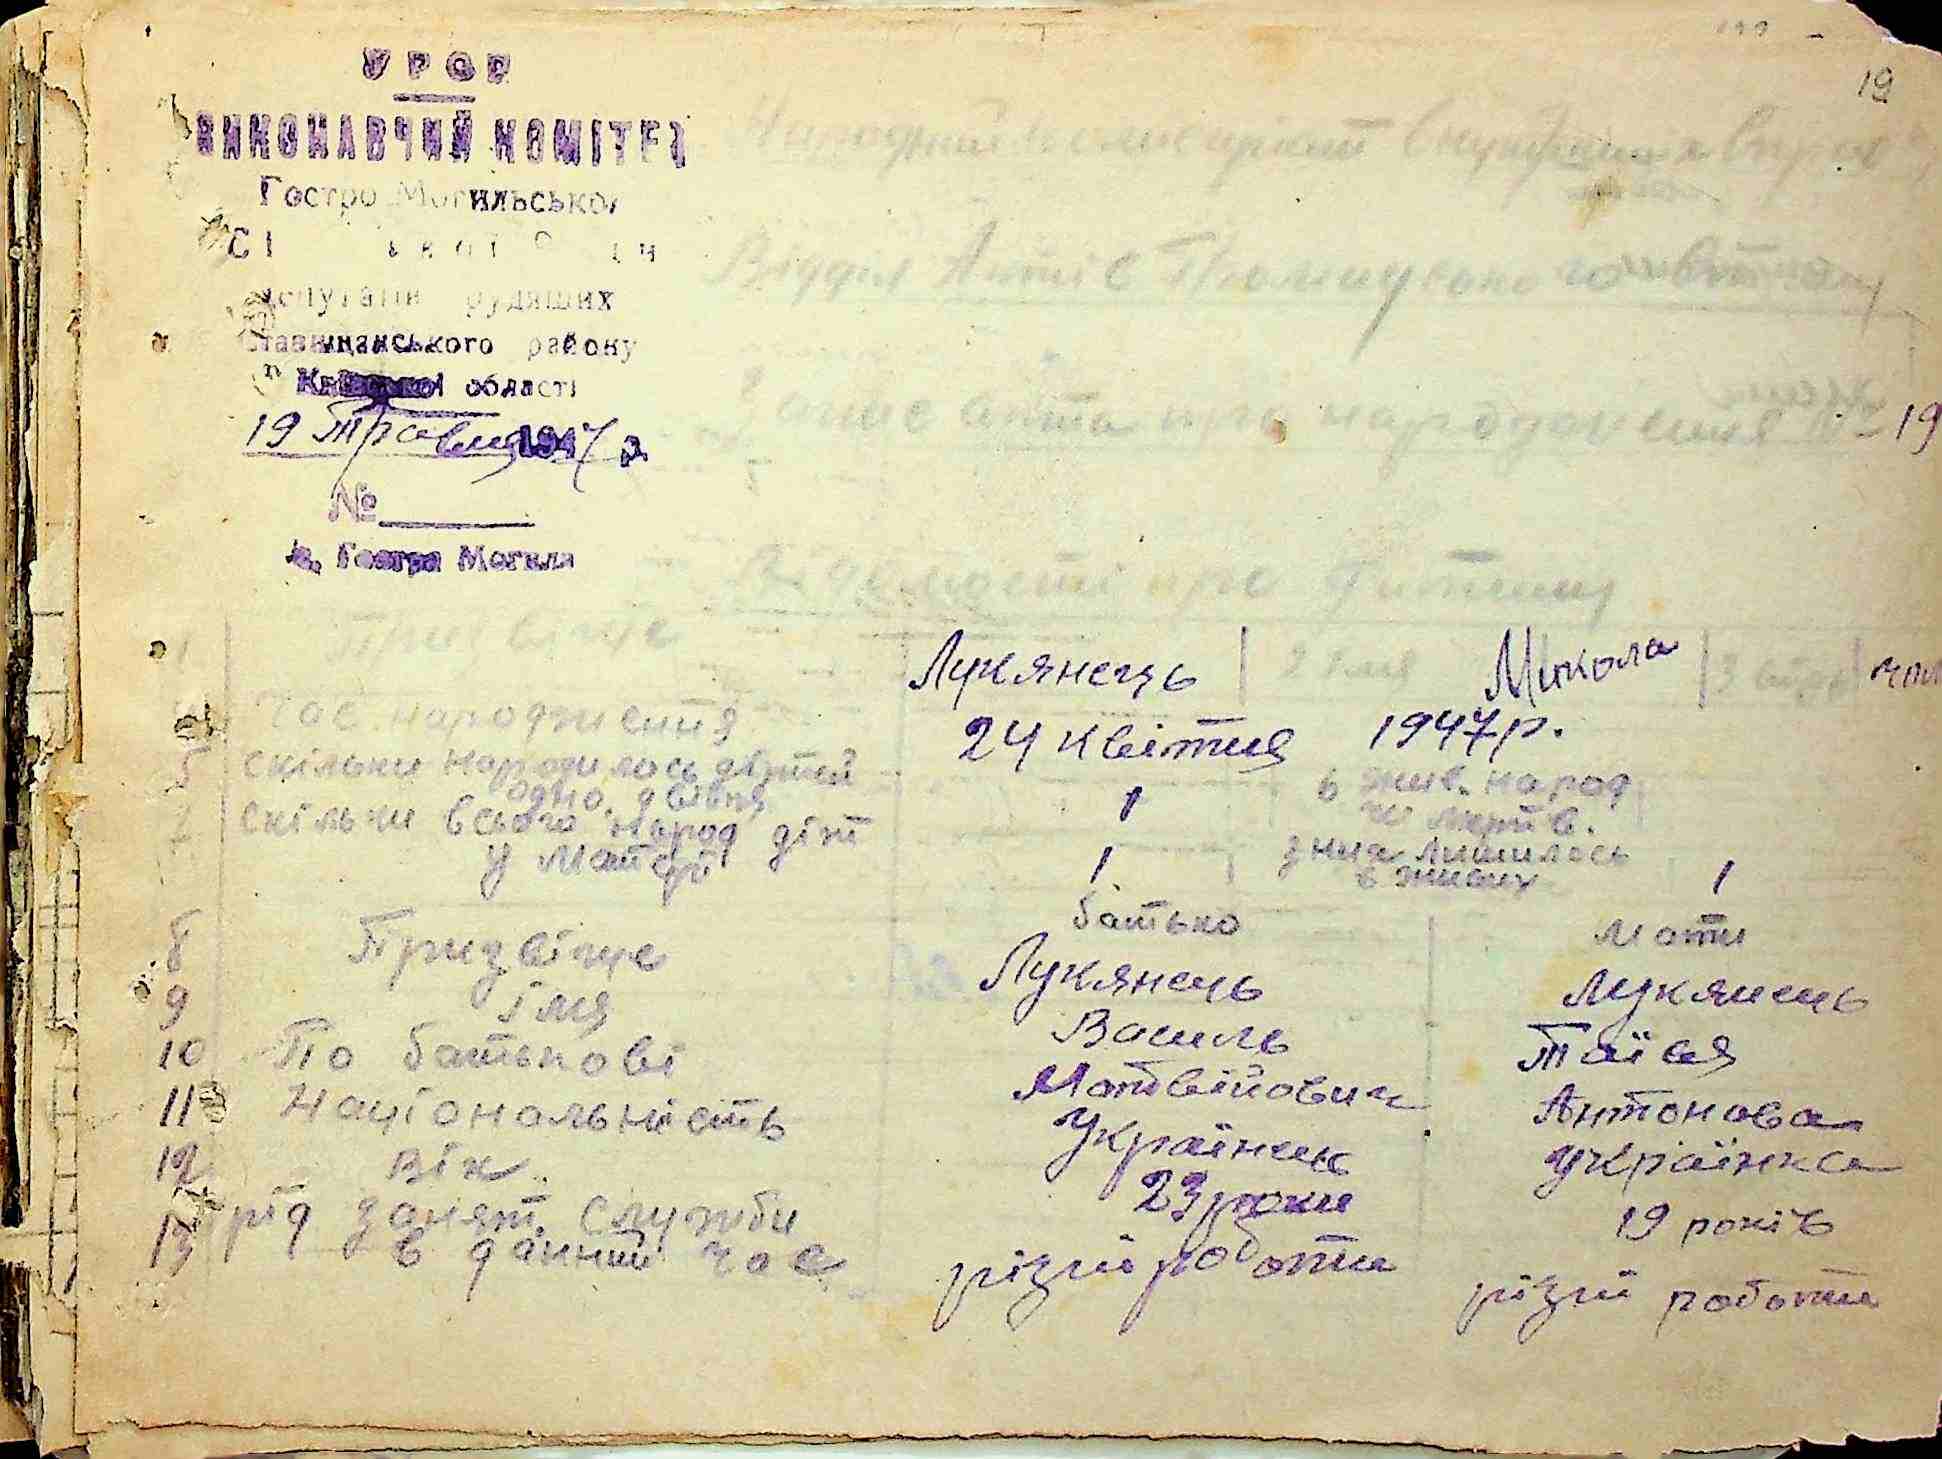 19
УРСР
ВИКОНАВЧИЙ КОМІТЕТ
Гостро Могильської
депутатів трудящих
Ставищанського району
Київської області
19 Травня 1947 р
№
с. Гостра Могила
Народний комісаріят внутрішніх справ
Відділ Актів Громадського
Запис акта про народження № 19
Відомості про дитину
1 Призвіще Лукянець 2 імя Микола 3 чол
4 Час народження 24 квітня 1947р.
5 Скільки народилось дітей одно. двійня 1 6 жив. народ чи мертв.
7 Скільки всього народ діт у матері 1 з них лишилось в живих 1
батько мати
8 Призвіще Лукянець Лукянець
9 імя Василь Таїсія
10 По батькові Матвійович Антонова
11 Національність Українець Українка
12 Вік 23 роки 19 років
13 рід занят. служби в данний час різні роботи різні роботи